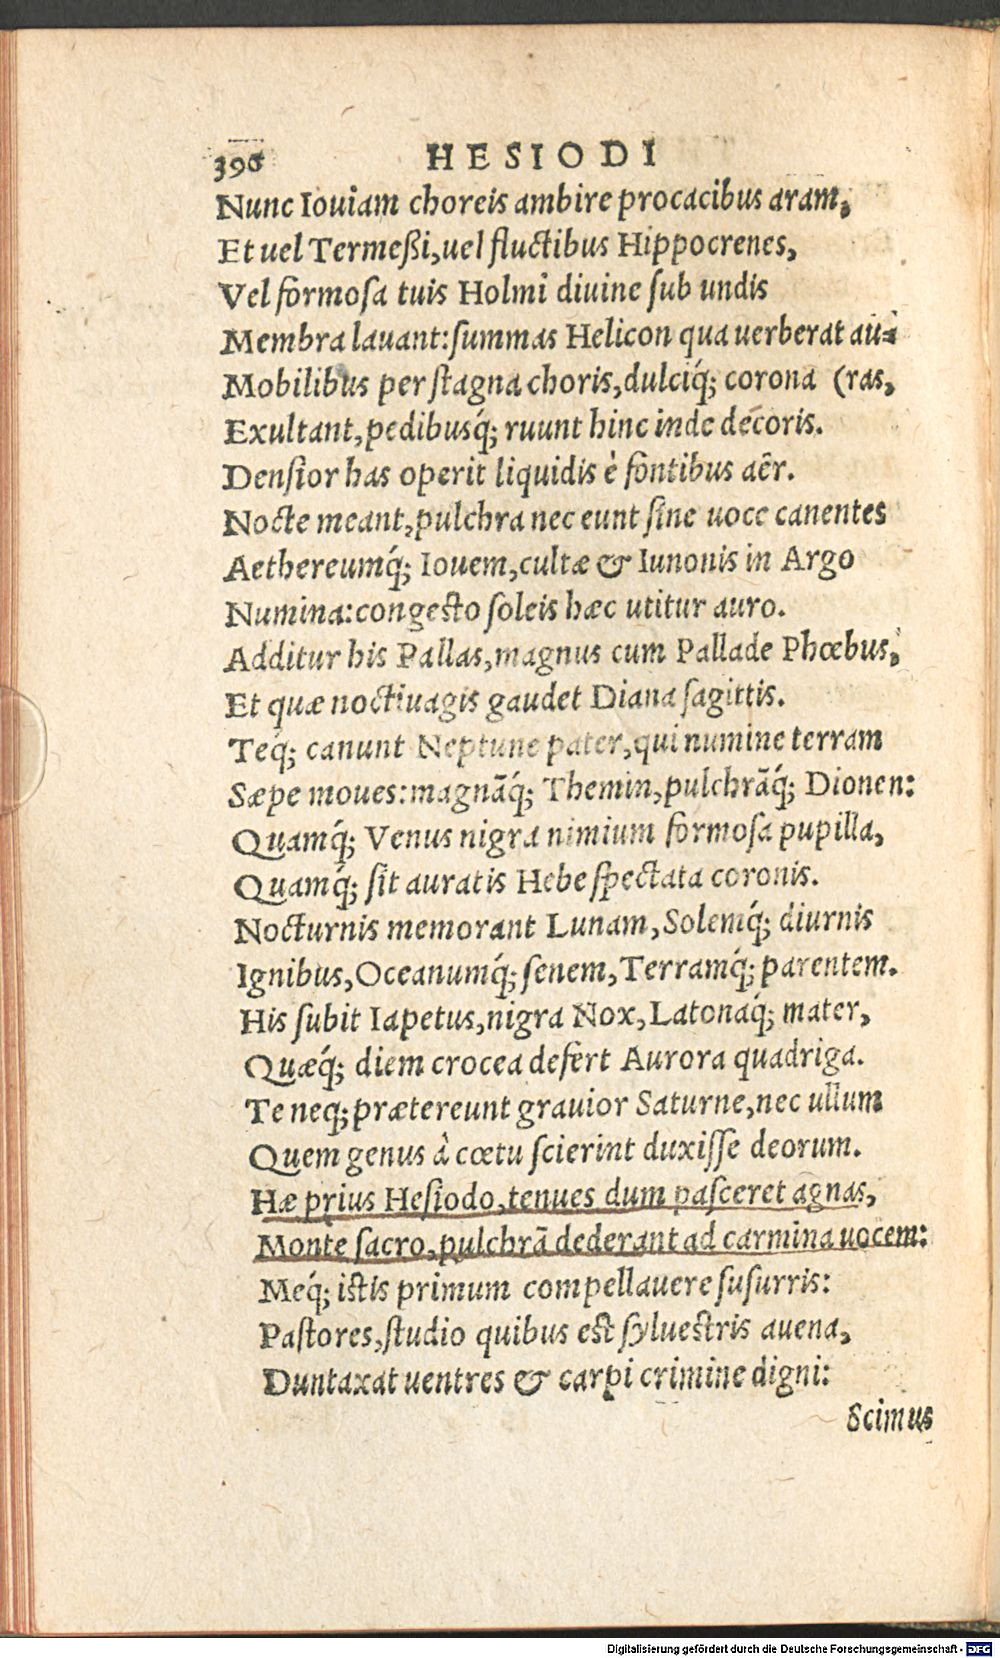 396 HESIODI
Nunc Iouiam choreis ambire procacibus aram,
Et uel Termeßi, uel fluctibus Hippocrenes,
Vel formosa tuis Holmi diuine sub undis
Membra lauant: summas Helicon qua uerberat au-
Mobilibus per stagna choris, dulciq́; corona (ras,
Exultant, pedibusq́; ruunt hinc inde decoris.
Densior has operit liquidis è fontibus aër.
Nocte meant, pulchra nec eunt sine uoce canentes
Aethereumq́; Iouem, cultæ & Iunonis in Argo
Numina: congesto soleis hæc utitur auro.
Additur his Pallas, magnus cum Pallade Phœbus,
Et quæ noctiuagis gaudet Diana sagittis.
Teq́; canunt Neptune pater, qui numine terram
Sæpe moues: magnãq́; Themin, pulchrãq́; Dionen:
Quamq́; Venus nigra nimium formosa pupilla,
Quamq́; sit auratis Hebe spectata coronis.
Nocturnis memorant Lunam, Solemq́; diurnis
Ignibus, Oceanumq́; senem, Terramq́; parentem.
His subit Iapetus, nigra Nox, Latonaq́; mater,
Quæq́; diem crocea defert Aurora quadriga.
Te neq; prætereunt grauior Saturne, nec ullum
Quem genus à cœtu scierint duxisse deorum.
Hæ prius Hesiodo, tenues dum pasceret agnas,
Monte sacro, pulchrã dederant ad carmina uocem:
Meq́; istis primum compellauere susurris:
Pastores, studio quibus est syluestris auena,
Duntaxat uentres & carpi crimine digni:
Scimus
Digitalisierung gefördert durch die Deutsche Forschungsgemeinschaft - DFG